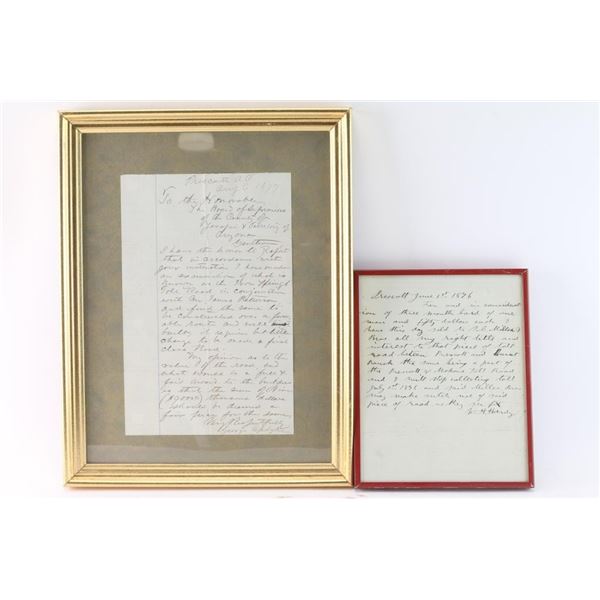 Prescott A.T.
Aug 6 1877
To the Honorable
The Board of Supervisors
of the County of
Yavapai & Territory of
Arizona
Gentlemen
I have the honor to Report
that in accordance with
your instruction I have made
an examination of what is
known as the
Toll Road in conjunction
with Mr. James Patterson
and find the same to
be constructed over a favor
able Route and well
built, it requires but little
change to be made a first
class Road
My opinion as to the
value of the road and
what would be a free &
fair award to the builders
is that the sum of
thousand dollars
should be deemed a
fair price for the same
Very Respectfully
George
Prescott June 1st 1876
For and in considerat
ion of three months board of one
man and fifty dollars cash I
have this day sold to Miller
Bros all my right title and
interest to that piece of toll
road between Prescott and
Ranch the same being a part of
the Prescott & Mohave Toll Road
and I will stop collecting toll
July 1st 1876 and said Miller
may make what use of said
piece of road as they see fit
W. H. Hardy